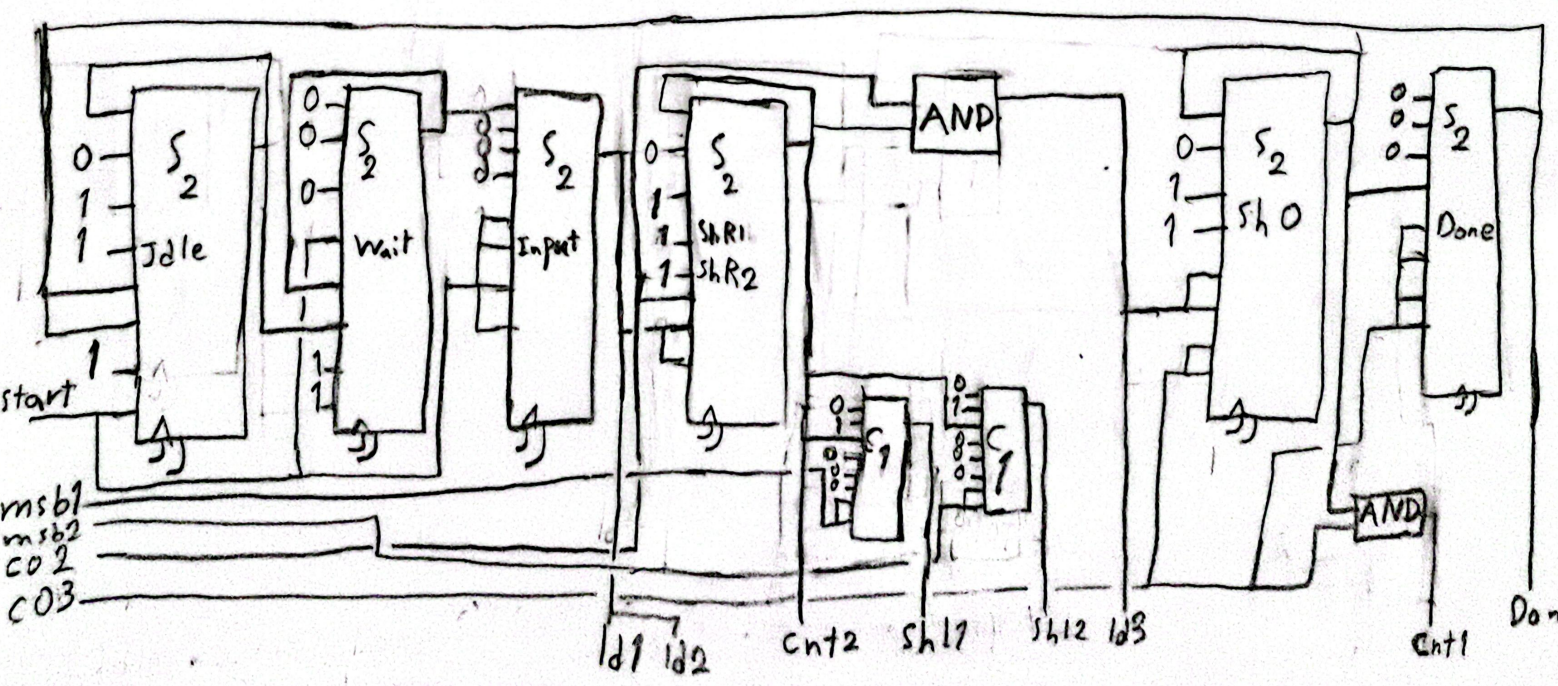 0
1
1
S
2
Idle
1
start
0
0
0
S
2
Wait
1
1
1
S
2
Input
0
1
1
1
S
2
ShR1
ShR2
AND
0
1
C
1
0
1
C
1
0
1
1
S
2
Sh0
0
0
0
S
2
Done
AND
msb1
msb2
co2
co3
ld1
ld2
Cnt2
Shl1
Shl2
ld3
Cnt1
Don